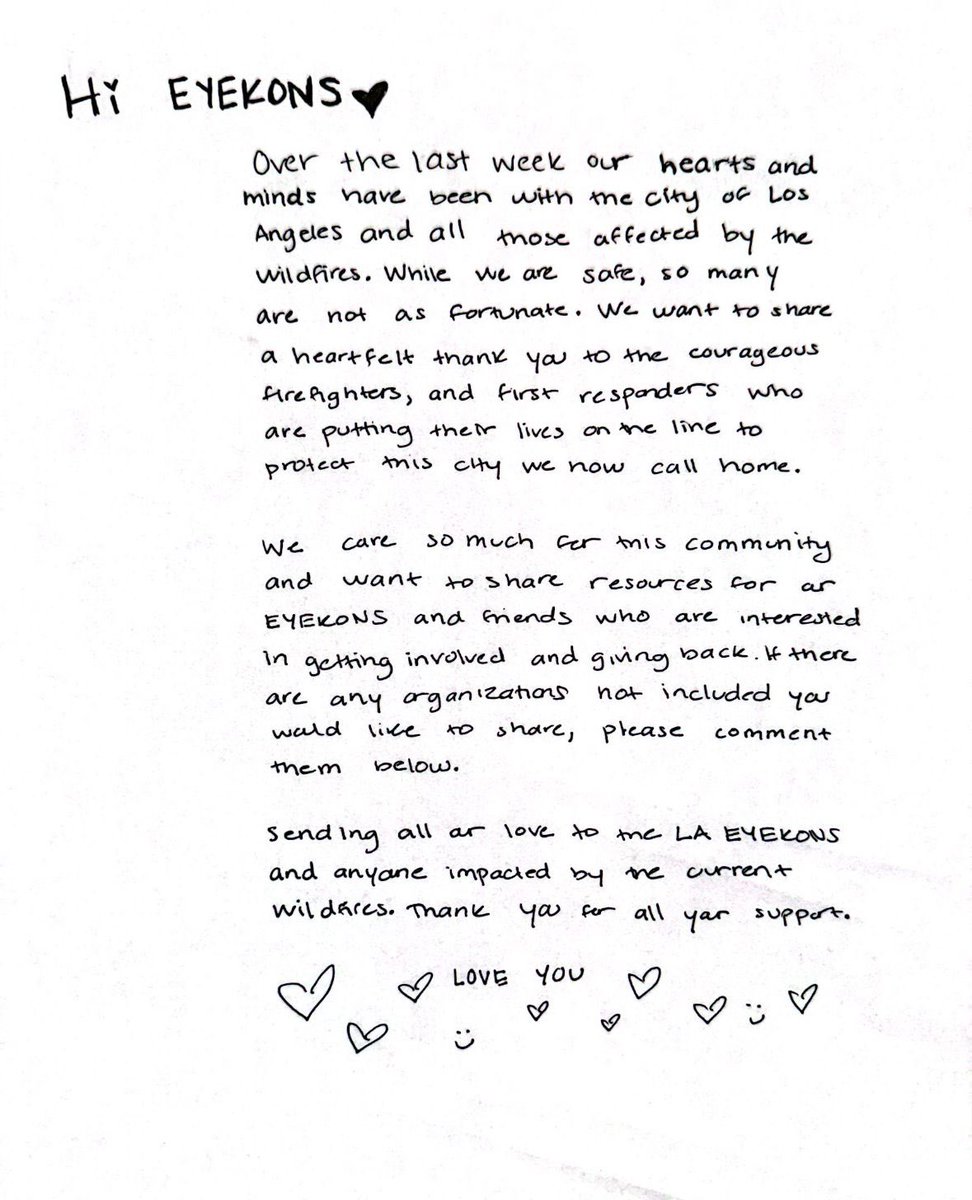 Hi EYEKONS♥
Over the last week our hearts and
minds have been with the city of Los
Angeles and all those affected by the
wildfires. While we are safe, so many
are not as fortunate. We want to share
a heartfelt thank you to the courageous
firefighters, and first responders who
are putting their lives on the line to
protect this city we now call home.
We care so much for this community
and want to share resources for our
EYEKONS and friends who are interested
in getting involved and giving back. If there
are any organizations not included you
would like to share, please comment
them below.
Sending all our love to the LA EYEKONS
and anyone impacted by the current
wildfires. Thank you for all your support.
LOVE YOU